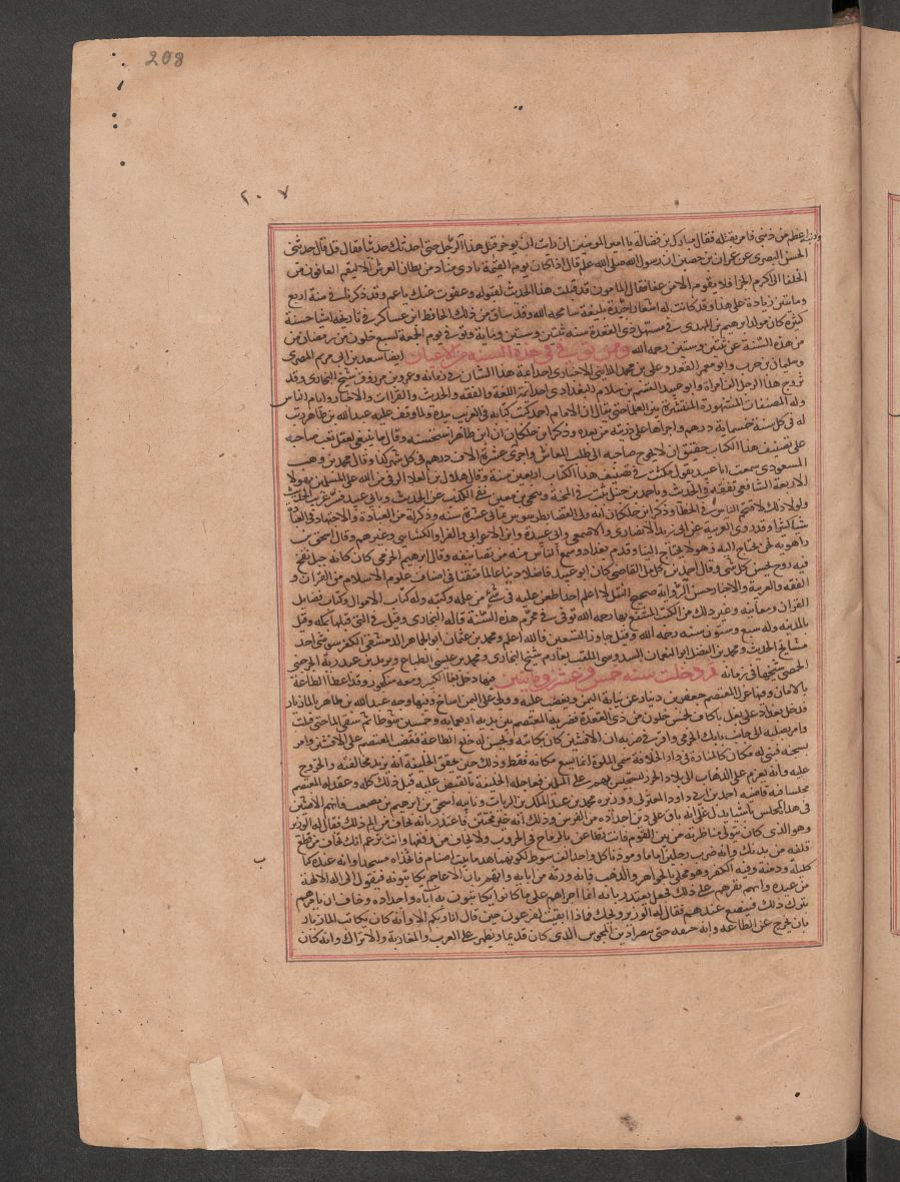 203
٢٠٧
اعظم من ذنبي فامر بقتله فقال مبارك بن فضالة يا امير المومنين ان رايت ان يوخر قتل هذا الرجل حتى احدثك حديثا فقال قل قال حدثني
الحسن البصري عن عمران بن حصين ان رسول الله صلى الله عليه قال اذا كان يوم القيمة نادى مناد من بطنان العرش الا ليقم العافون من
الخلفا الى اكرم الجزا فلا يقوم الا من عفا فقال المامون قد قبلت هذا الحديث لقبوله وعفوت عنك يا عم وقد ذكرنا في سنة اربع
ومايتين زيادة على هذا وقد كانت له اشعار جيدة بليغة سامحه الله وقد ساق من ذلك الحافظ ابن عساكر في تاريخه اشيا حسنة
كثيرة كان مولد ابرهيم بن المهدي في مستهل ذي القعدة سنة ثنتين وستين وماية وتوفي يوم الجمعة لسبع خلون من رمضان من
من هذه السنة عن ثنتين وستين رحمه الله وممن توفي في هذه السنة من الاعيان ايضا سعد بن ابي مريم المصري
وسليمان بن حرب وابو معمر المقعد وعلي بن محمد المدايني الاخباري احد ايمة هذا الشان في زمانه وعمرو بن مرزوق شيخ البخاري وقد
تزوج هذا الرجل الف امراة وابو عبيد القسم بن سلام البغدادي احد ايمة اللغة والفقه والحديث والقراات والاخبار وايام الناس
وله المصنفات المشهورة المنتشرة بين العلما حتى يقال ان الامام احمد كتب كتابه في الغريب بيده ولما وقف عليه عبد الله بن طاهر رتب
له في كل سنة خمسماية درهم واجراها على ذريته من بعده وذكر ابن خلكان ان ابن طاهر استحسنه وقال ما ينبغي لعقل بعث صاحبه
على تصنيف هذا الكتاب حقيق ان لا يحوج صاحبه الى طلب المعاش واجرى عشرة الاف درهم في كل شهر كذا وقال محمد بن وهب
المسعودي سمعت ابا عبيد يقول مكثت في تصنيف هذا الكتاب اربعين سنة وقال هلال بن العلا الرقي من الله على المسلمين بهولا
الاربعة الشافعي تفقه في الحديث وباحمد بن حنبل ثبت في المحنة ويحيى بن معين نفي الكذب عن الحديث وبابي عبيد فسر غريب الحديث
ولولا ذلك لاقتحم الناس في الخطا وذكر ابن خلكان انه ولى القضا بطرسوس ثماني عشرة سنة وذكر له من العبادة والاجتهاد في العبادة
شيا كثيرا وقد روى العربية عن ابي زيد الانصاري والاصمعي وابي عبيدة وابن الاعرابي والفرا والكساي وغيرهم وقال اسحق بن
راهويه نحن نحتاج اليه وهو لا يحتاج الينا وقدم بغداد وسمع الناس منه من تصانيفه وقال ابرهيم الحربي كان كانه جبل نفخ
فيه روح يحسن كل شي وقال احمد بن كامل القاضي كان ابو عبيد فاضلا دينا عالما متقنا في اصناف علوم الاسلام من القران و
الفقه والعربية والاخبار حسن الرواية صحيح النقل لا اعلم احدا طعن عليه في شي من علمه وكتبه وله كتاب الاموال وكتاب فضايل
القران ومعانيه وغير ذلك من الكتب المنتفع بها رحمه الله توفي في محرم هذه السنة قاله البخاري وقيل في التي قبلها بمكة وقيل
بالمدينة وله سبع وستون سنة رحمه الله وقيل جاوز السبعين فالله اعلم ومحمد بن عثمان ابو الجماهر الدمشقي الكفرسوسي احد
مشايخ الحديث ومحمد بن الفضل ابو النعمان السدوسي الملقب بعارم شيخ البخاري ومحمد بن عيسى الطباع ويزيد بن عبد ربه الجرجسي
الحمصي شيخها في زمانه ثم دخلت سنة خمس وعشرين ومايتين فيها دخل بغا الكبير ومعه منكجور وقد اعطا الطاعة
بالامان وفيها عزل المعتصم جعفر بن دينار عن نيابة اليمن وغضب عليه وولى على اليمن ايتاخ وفيها وجه عبد الله بن طاهر بالمازيار
فدخل بغداد على بغل باكاف لخمس خلون من ذي القعدة فضربه المعتصم بين يديه اربعماية وخمسين سوطا ثم سقي الما حتى مات
وامر بصلبه الى جانب بابك الخرمي واقر في ضربه ان الافشين كان يكاتبه ويحسن له خلع الطاعة فغضب المعتصم على الافشين وامر
بسجنه فبني له مكان كالمنارة في دار الخلافة سمي اللولوة انما يسع مكانه فقط وذلك حين تحقق الخليفة انه يريد مخالفته والخروج
عليه وانه يعزم على الذهاب الى بلاد الخزر ليستجيش بهم على المسلمين فعاجله الخليفة بالقبض عليه قبل ذلك كله وعقد له المعتصم
مجلسا فيه قاضيه احمد بن ابي داود المعتزلي ووزيره محمد بن عبد الملك بن الزيات ونايبه اسحق بن ابرهيم بن مصعب فاتهم الافشين
في هذا المجلس باشيا يدل على انه باق على دين اجداده من الفرس وذلك انه غير مختتن فاعتذر بانه يخاف من الم ذلك فقال له الوزير
وهو الذي كان يتولى مناظرته من بين القوم فانت تطاعن بالرماح في الحروب ولا تخاف من وقعها وانت تزعم انك تخاف من قطع
قلفة من بدنك وانه ضرب رجلين اماما ومؤذنا كل واحد الف سوط لكونهما هدما بيت اصنام فاتخذاه مسجدا وانه عنده كتاب
كليلة ودمنة وفيه الكفر وهو محلى بالجواهر والذهب فاعتذر انه ورثه من ابايه واتهم بان الاعاجم يكاتبونه فيقول الى اله الالهة
من عبيده وانهم يقرهم على ذلك فجعل يعتذر بانه انما اجراهم على ما كانوا يكاتبون به اباه واجداده وخاف ان يامرهم
بترك ذلك فيتضع عندهم فقال له الوزير ويحك فماذا ابقيت لفرعون حين قال انا ربكم الاعلى وانه كان يكاتب المازيار
بان يخرج عن الطاعة وانه في ضيق حتى ينصر دين المجوس الذي كان قديما ويظهره على العرب والمغاربة والاتراك وانه كان